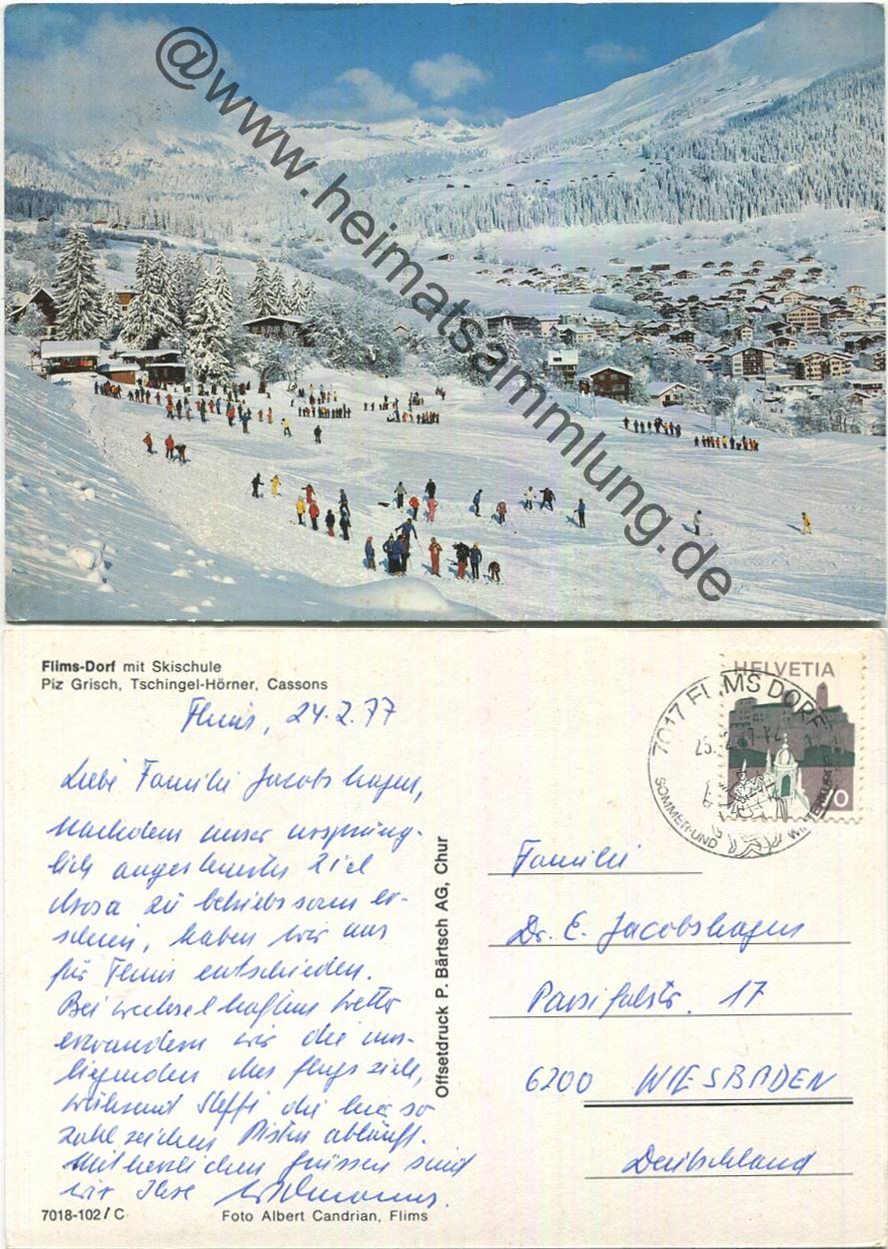 @www.heimatsammlung.de
Flims-Dorf mit Skischule
Piz Grisch, Tschingel-Hörner, Cassons
Flims, 24.2.77
Liebe Familie Jacobshagen,
Nachdem unser ursprüng-
lich angesteuertes Ziel
Arosa zu betriebssam er-
schien, haben wir uns
für Flims entschieden.
Bei wechselhaftem Wetter
erwandern wir die um-
liegenden Ausflugsziele,
während Steffi die hier so
zahlreichen Pisten abläuft.
Mit herzlichen Grüssen sind
wir Ihre
7018-102/C
Foto Albert Candrian, Flims
Offsetdruck P. Bärtsch AG, Chur
HELVETIA
70
7017 FLIMS DORF
SOMMER- UND
Familie
Dr. E. Jacobshagen
Parsifalstr. 17
6200 WIESBADEN
Deutschland